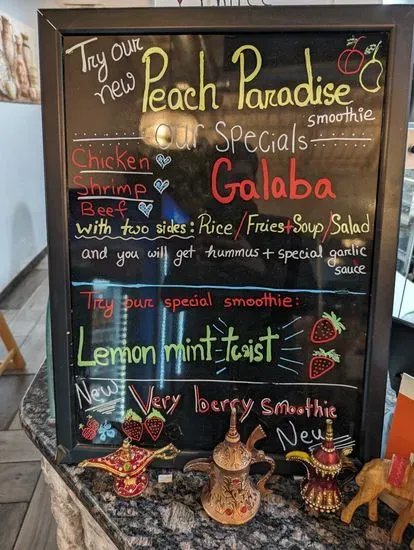 Try our
new
Peach Paradise
smoothie
our Specials
Chicken
Shrimp
Beef
Galaba
with two sides: Rice / Fries + Soup / Salad
and you will get hummus + special garlic
sauce
Try our special smoothie:
Lemon mint twist
New
Very berry smoothie
New